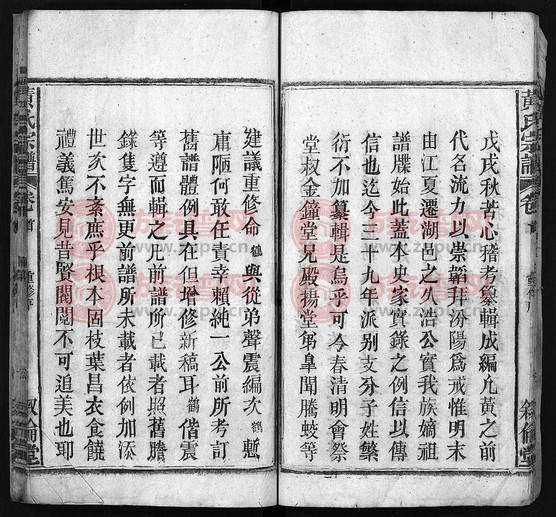 戊戌秋苦心稽考纂輯成編凡黃之前
代名流力以崇韜拜汾陽爲戒惟明末
由江夏遷湖邑之久浩公實我族嫡祖
譜牒始此蓋本史家實錄之例信以傳
信也迄今三十九年派別支分子姓繁
衍不加纂輯是烏乎可今春清明會祭
堂叔金鐘堂兄殿揚堂弟皐聞騰蛟等
建議重修命鶴與從弟聲震編次鶴慙
庸陋何敢任責幸賴純一公前所考訂
舊譜體例具在但增修新稿耳鶴偕震
等遵而輯之凡前譜所已載者照舊謄
錄隻字無更前譜所未載者依例加添
世次不紊庶乎根本固枝葉昌衣食饒
禮義篤安見昔賢閥閱不可追美也耶
黃氏宗譜
卷首
重修序
敘倫堂
黃氏宗譜
卷首
敘倫堂
族譜网
www.zupu.cn